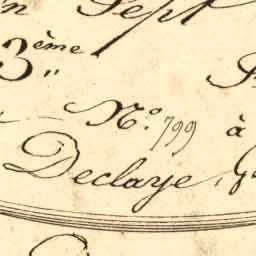 Sept
3ème
No. 799 à
Declaye,